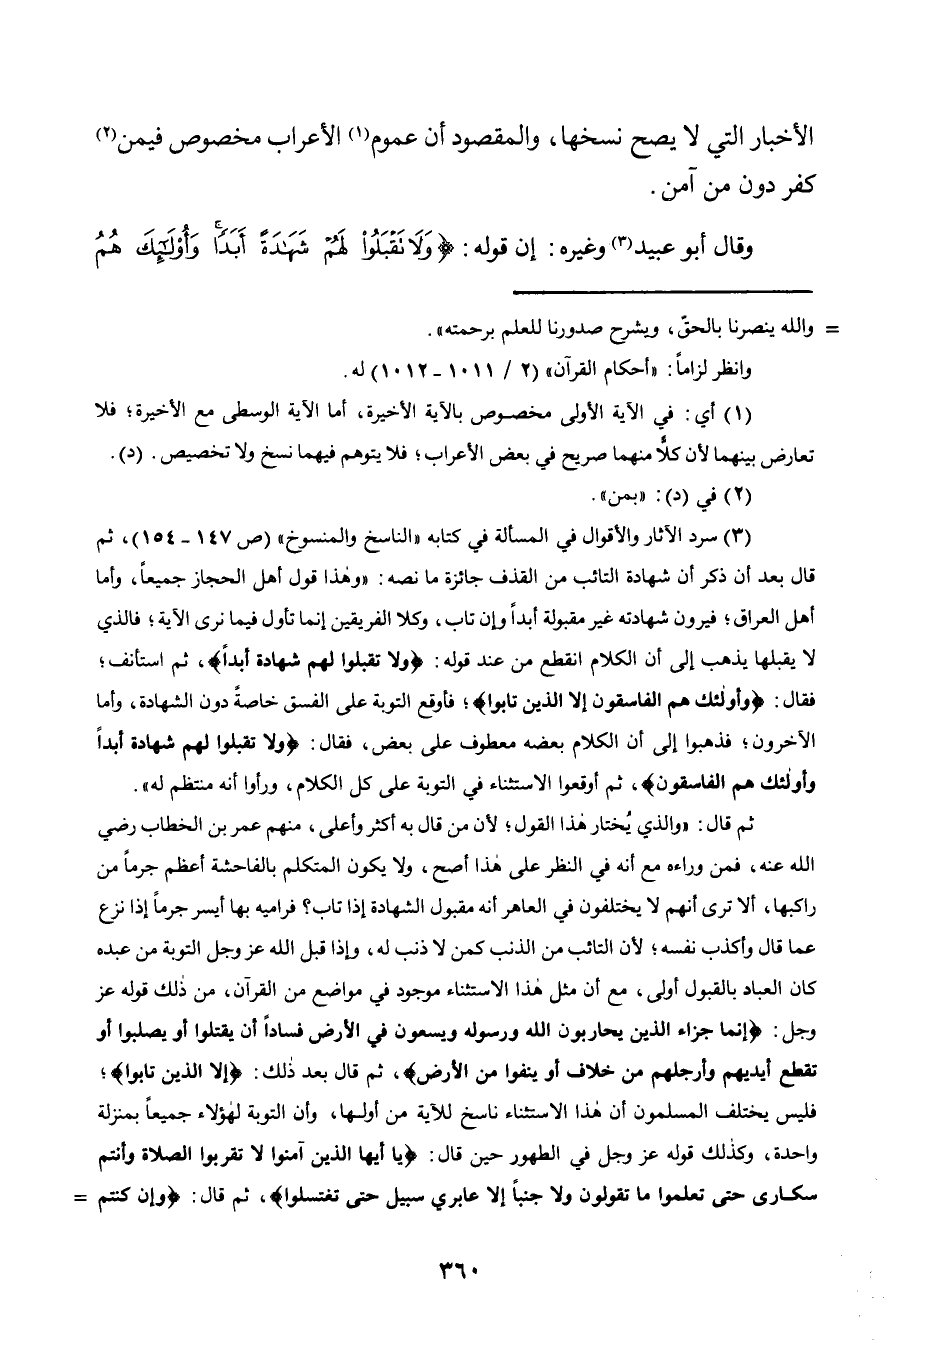 الأخبار التي لا يصح نسخها، والمقصود أن عموم(١) الأعراب مخصوص فيمن(٢)
كفر دون من آمن.
وقال أبو عبيد(٣) وغيره: إن قوله: ﴿وَلَا تَقْبَلُوا۟ لَهُمْ شَهَٰدَةً أَبَدًا ۚ وَأُو۟لَٰٓئِكَ هُمُ
= والله ينصرنا بالحقّ، ويشرح صدورنا للعلم برحمته».
وانظر لزاماً: «أحكام القرآن» (٢ / ١٠١١ ـ ١٠١٢) له.
(١) أي: في الآية الأولى مخصوص بالآية الأخيرة، أما الآية الوسطى مع الأخيرة؛ فلا
تعارض بينهما لأن كلًّا منهما صريح في بعض الأعراب؛ فلا يتوهم فيهما نسخ ولا تخصيص. (د).
(٢) في (د): «بمن».
(٣) سرد الآثار والأقوال في المسألة في كتابه «الناسخ والمنسوخ» (ص ١٤٧ ـ ١٥٤)، ثم
قال بعد أن ذكر أن شهادة التائب من القذف جائزة ما نصه: «وهٰذا قول أهل الحجاز جميعاً، وأما
أهل العراق؛ فيرون شهادته غير مقبولة أبداً وإن تاب، وكلا الفريقين إنما تأول فيما نرى الآية؛ فالذي
لا يقبلها يذهب إلى أن الكلام انقطع من عند قوله: ﴿ولا تقبلوا لهم شهادة أبداً﴾، ثم استأنف؛
فقال: ﴿وأولٰئك هم الفاسقون إلا الذين تابوا﴾؛ فأوقع التوبة على الفسق خاصةً دون الشهادة، وأما
الآخرون؛ فذهبوا إلى أن الكلام بعضه معطوف على بعض، فقال: ﴿ولا تقبلوا لهم شهادة أبداً
وأولٰئك هم الفاسقون﴾، ثم أوقعوا الاستثناء في التوبة على كل الكلام، ورأوا أنه منتظم له».
ثم قال: «والذي يُختار هٰذا القول؛ لأن من قال به أكثر وأعلى، منهم عمر بن الخطاب رضي
الله عنه، فمن وراءه مع أنه في النظر على هٰذا أصح، ولا يكون المتكلم بالفاحشة أعظم جرماً من
راكبها، ألا ترى أنهم لا يختلفون في العاهر أنه مقبول الشهادة إذا تاب؟ فراميه بها أيسر جرماً إذا نزع
عما قال وأكذب نفسه؛ لأن التائب من الذنب كمن لا ذنب له، وإذا قبل الله عز وجل التوبة من عبده
كان العباد بالقبول أولى، مع أن مثل هٰذا الاستثناء موجود في مواضع من القرآن، من ذٰلك قوله عز
وجل: ﴿إنما جزاء الذين يحاربون الله ورسوله ويسعون في الأرض فساداً أن يقتلوا أو يصلبوا أو
تقطع أيديهم وأرجلهم من خلاف أو ينفوا من الأرض﴾، ثم قال بعد ذٰلك: ﴿إلا الذين تابوا﴾؛
فليس يختلف المسلمون أن هٰذا الاستثناء ناسخ للآية من أولها، وأن التوبة لهٰؤلاء جميعاً بمنزلة
واحدة، وكذٰلك قوله عز وجل في الطهور حين قال: ﴿يا أيها الذين آمنوا لا تقربوا الصلاة وأنتم
سكارى حتى تعلموا ما تقولون ولا جنباً إلا عابري سبيل حتى تغتسلوا﴾، ثم قال: ﴿وإن كنتم =
٣٦٠